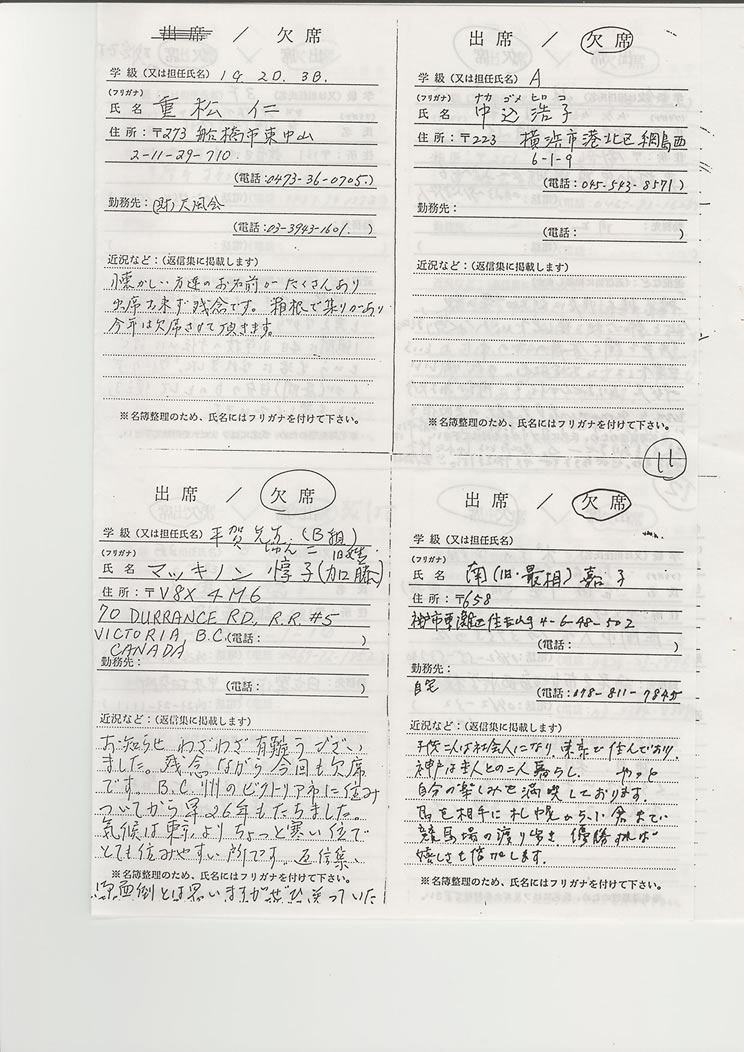 出席 / 欠席
学級（又は担任氏名） 1G. 2D. 3B.
(フリガナ)
氏名 重松 仁
住所：〒273 船橋市東中山
2-11-29-710
(電話：0473-36-0705.)
勤務先：(財)大風会
(電話：03-3943-1601. )
近況など：（返信集に掲載します）
懐かしい方達のお名前がたくさんあり
出席出来ず残念です。箱根で集りがあり
今年は欠席させて頂きます。
※名簿整理のため、氏名にはフリガナを付けて下さい。
出席 / 欠席
学級（又は担任氏名） A
(フリガナ) ナカ ゴメ ヒロ コ
氏名 中込 浩子
住所：〒223 横浜市港北区綱島西
6-1-9
(電話：045-543-8571)
勤務先：
(電話： )
近況など：（返信集に掲載します）
※名簿整理のため、氏名にはフリガナを付けて下さい。
11
出席 / 欠席
学級（又は担任氏名） 平賀先生（B組）
(フリガナ) じゅんこ 旧姓
氏名 マッキノン 惇子(加藤)
住所：〒V8X 4M6
70 DURRANCE RD, R.R. #5
VICTORIA, B.C. (電話： )
CANADA
勤務先：
(電話： )
近況など：（返信集に掲載します）
お知らせ わざわざ有難うござい
ました。残念ながら今回も欠席
です。B.C.州のビクトリア市に住み
ついてから早26年もたちました。
気候は東京よりちょっと寒い位で
とても住みやすい所です。返信集、
※名簿整理のため、氏名にはフリガナを付けて下さい。
御面倒とは思いますがぜひ送っていた
出席 / 欠席
学級（又は担任氏名）
(フリガナ)
氏名 南(旧・最相)嘉子
住所：〒658
神戸市東灘区住吉山手 4-6-48-502
(電話： )
勤務先：
自宅 (電話：078-811-7845)
近況など：（返信集に掲載します）
子供二人は社会人になり、東京で住んでおり、
神戸は主人との二人暮らし。 やっと
自分の楽しみを満喫しております。
馬を相手に札幌から小倉まで
競馬場の渡り歩き 優勝すれば
嬉しさも倍加します。
※名簿整理のため、氏名にはフリガナを付けて下さい。